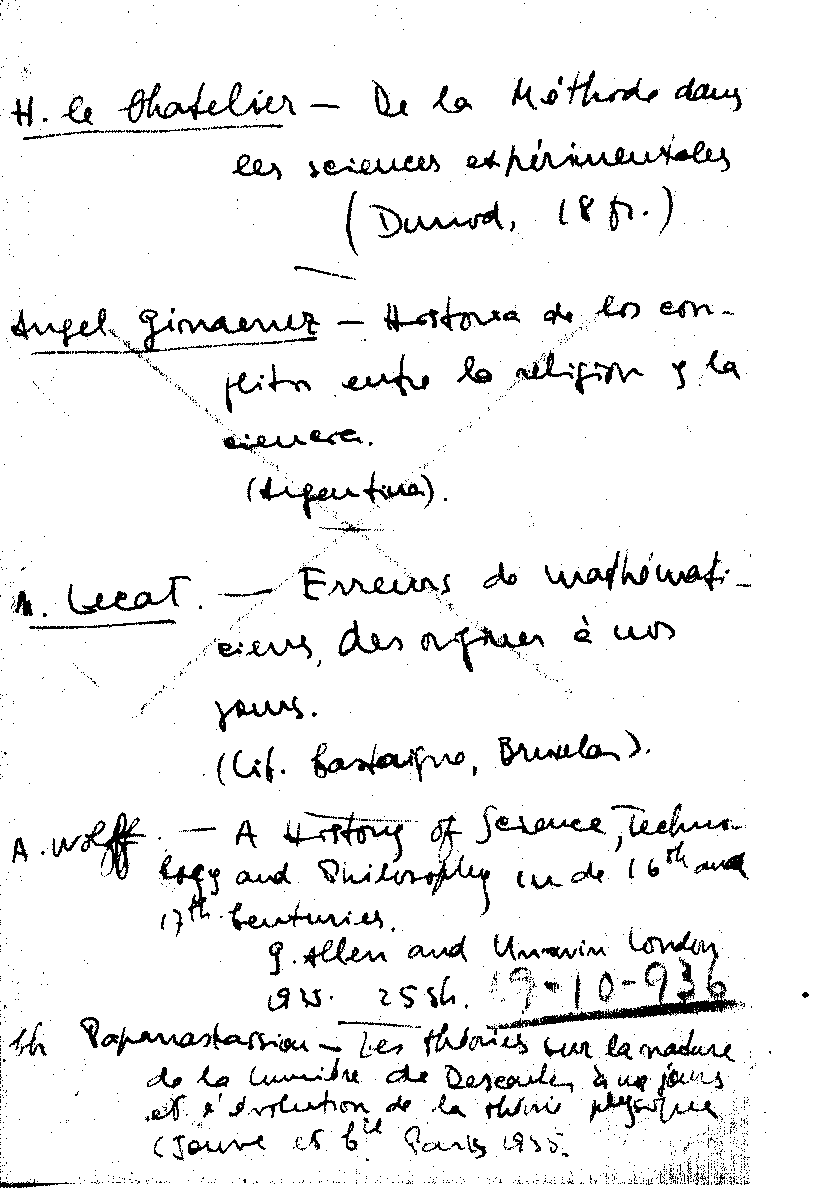 H. le Chatelier — De la Méthode dans
les sciences expérimentales
(Dunod, 18 fr.)
Angel Gimenez — Historia de los con-
flitos entre la religion y la
ciencia.
(Argentina).
M. Lecat. — Erreurs de mathémati-
ciens, des origines à nos
jours.
(Lib. Castaigne, Bruxelas).
A. Wolff. — A History of Science, Techno-
logy and Philosophy in de 16th and
17th Centuries.
G. Allen and Unwin London
1935. 25 sh. 19-10-936
Ch Papanastassiou — Les théories sur la nature
de la lumière de Descartes à nos jours
et l'évolution de la théorie physique
(Jouve et Cie Paris 1935.